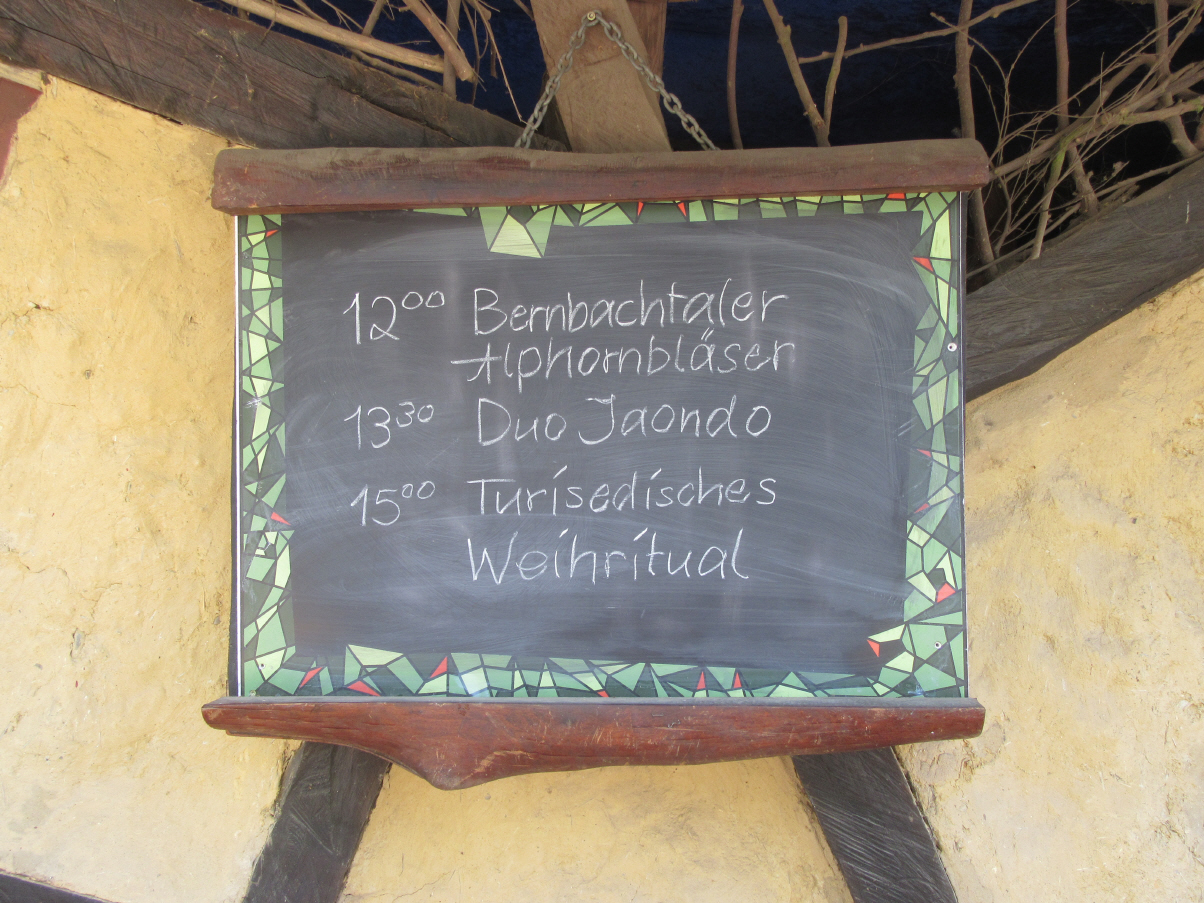 12⁰⁰ Bernbachtaler
Alphornbläser
13³⁰ Duo Jaondo
15⁰⁰ Turisedisches
Weihritual